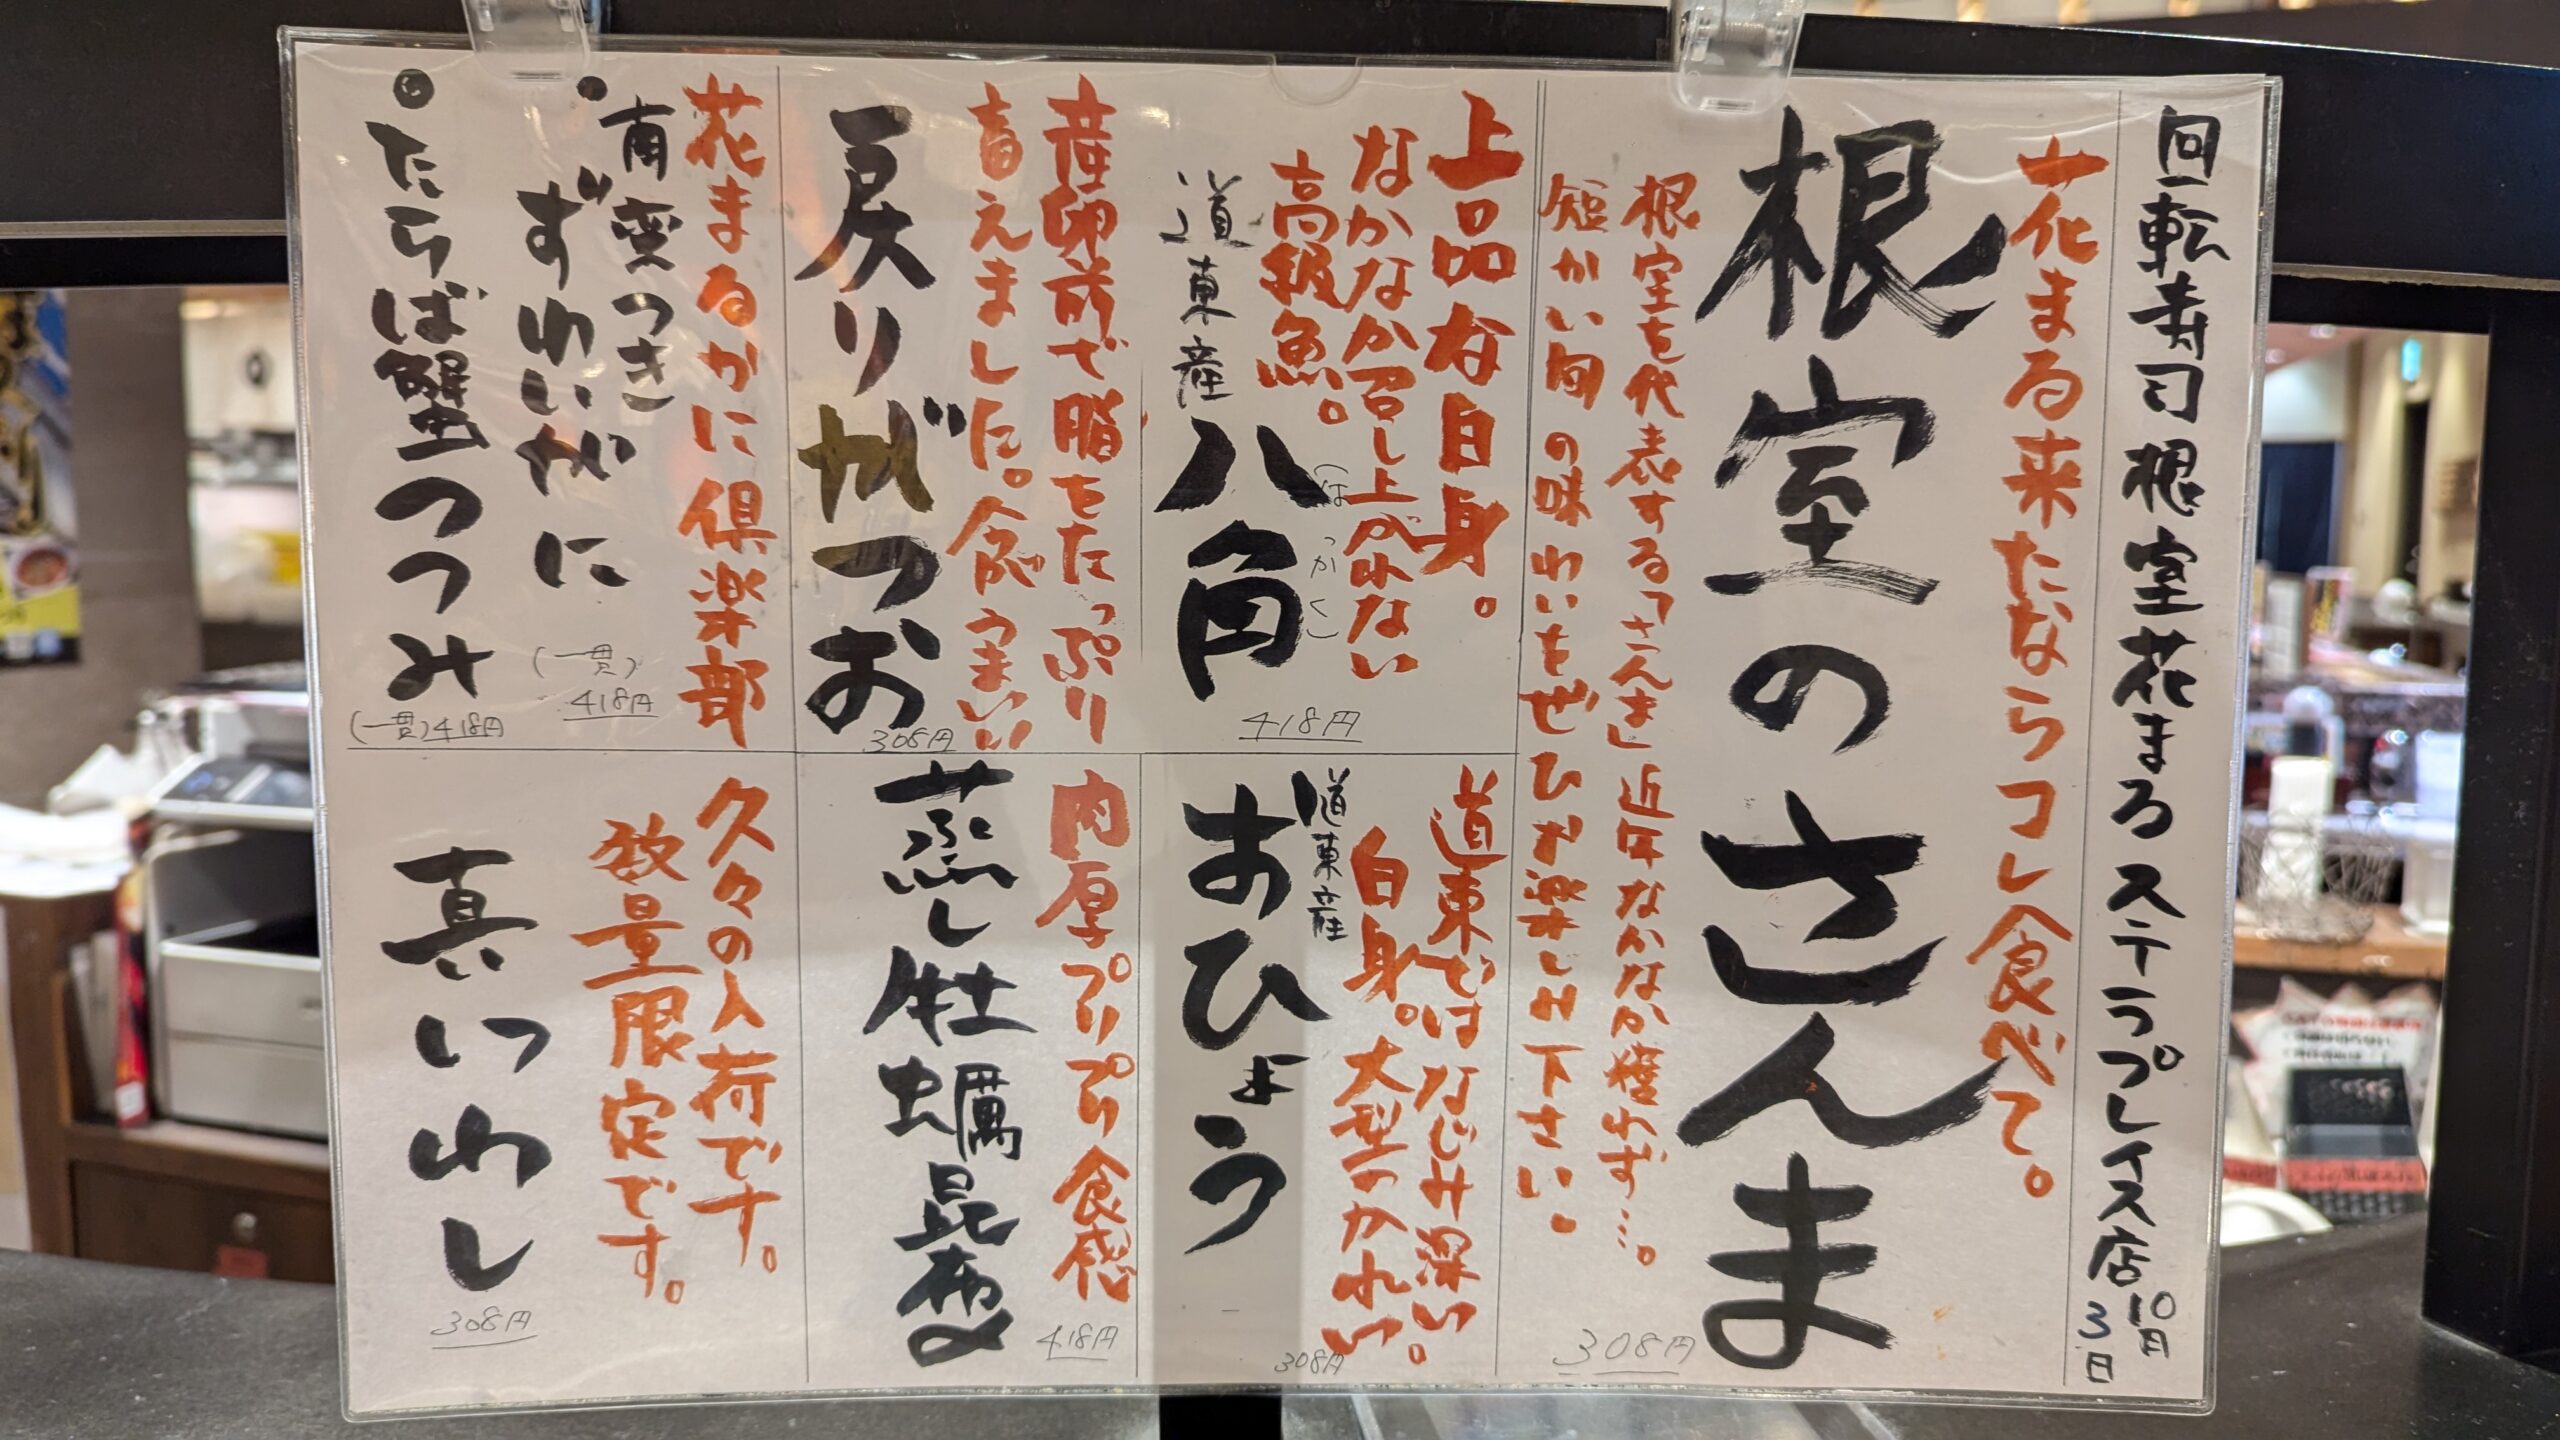 回転寿司 根室花まる ステラプレイス店 10月3日
花まる来たならコレ食べて。
根室のさんま
根室を代表する「さんま」近年なかなか獲れず…。
短かい旬の味わいをぜひお楽しみ下さい。
308円
上品な白身。
なかなか召し上がれない
高級魚。
道東産
八角
(はっかく)
418円
道東ではなじみ深い。
白身。大型のかれい
道東産
おひょう
308円
産卵前で脂をたっぷり
蓄えました。食感うまい!!
戻りがつお
308円
肉厚プリプリ食感
蒸し牡蠣昆布〆
418円
花まるかに倶楽部
南蛮つき
・ずわいがに
(一貫)
418円
・たらば蟹つつみ
(一貫)418円
久々の入荷です。
数量限定です。
真いわし
308円